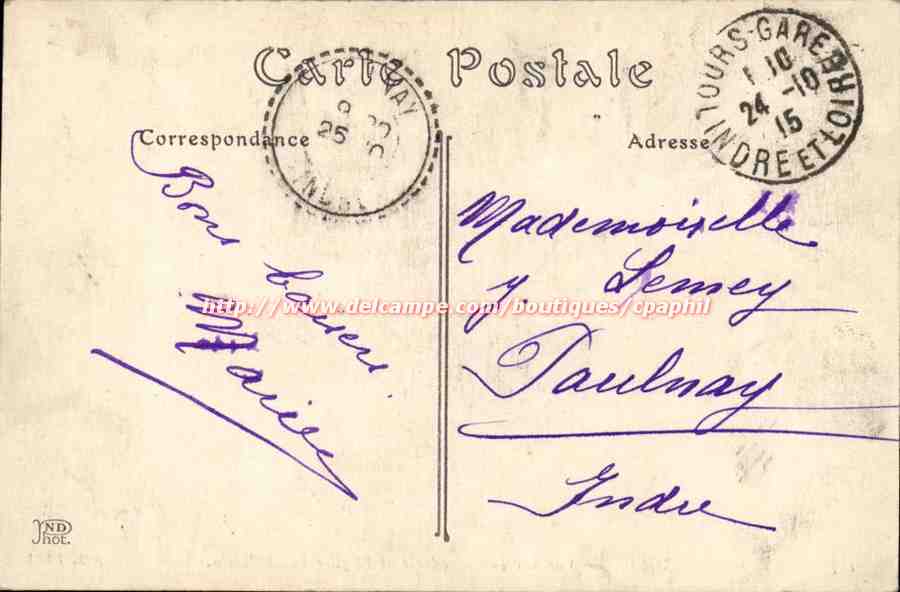 Carte Postale
Correspondance
Adresse
TOURS-GARE
24 -10
15
INDRE ET LOIRE
NAY
25
INDRE
Bons baisers
Marie
Mademoiselle
y. Lemey
Paulnay
Indre
http://www.delcampe.com/boutiques/cpaphil
ND
Phot.